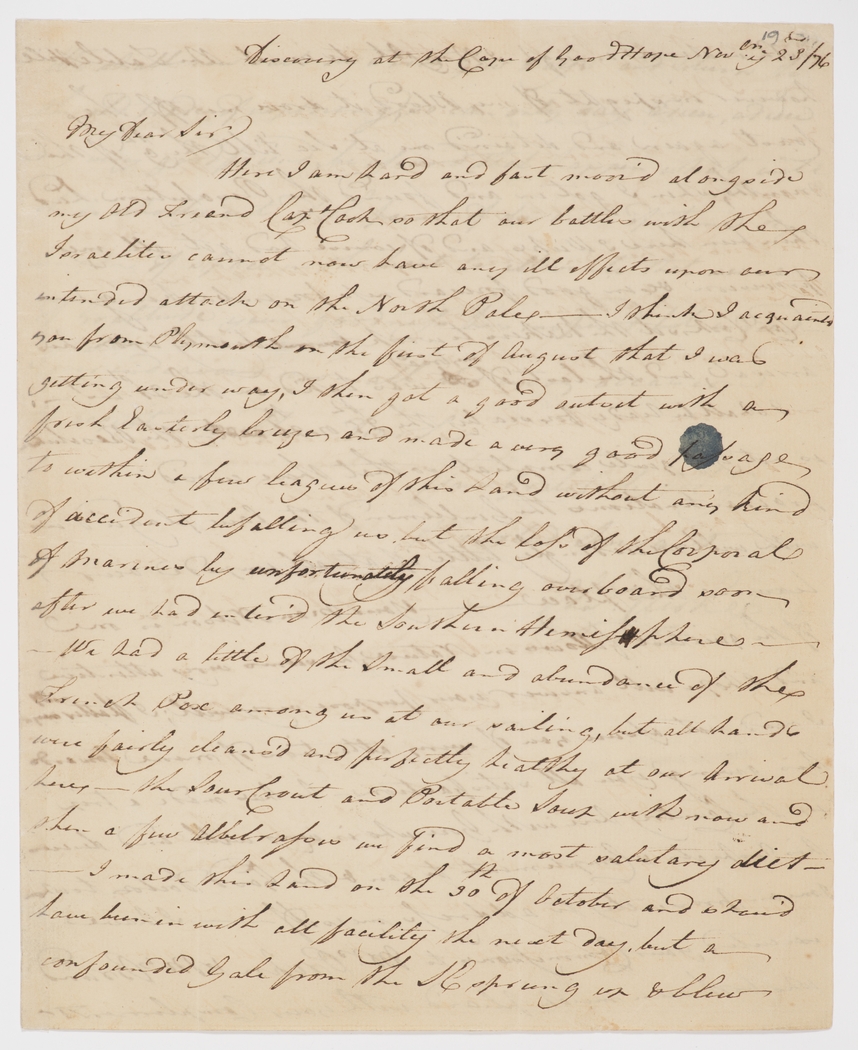 19
Discovery at the Cape of Good Hope Novem 23d /76
My Dear Sir
Here I am hard and fast moor'd alongside
my Old Friend Capt Cook so that our battles with the
Israelites cannot now have any ill effects upon our
intended attack on the North Pole — I think I acquainted
you from Plymouth on the first of August that I was
getting under way, I then got a good outset with a
fresh Easterly breeze and made a very good passage
to within a few leagues of this Land without any kind
of accident befalling us, but the loss of the Corporal
of Marines by unfortunately falling overboard soon
after we had enter'd the Southern Hemisphere —
— We had a little of the Small and abundance of the
French Pox among us at our sailing, but all hands
were fairly cleans'd and perfectly healthy at our Arrival
here — the Sour Crout and Portable Soup with now and
then a few Albetrasses we find a most salutary diet —
— I made this Land on the 30th of October and shou'd
have been in with all facility the next day, but a
confounded Gale from the SE sprung up & blew